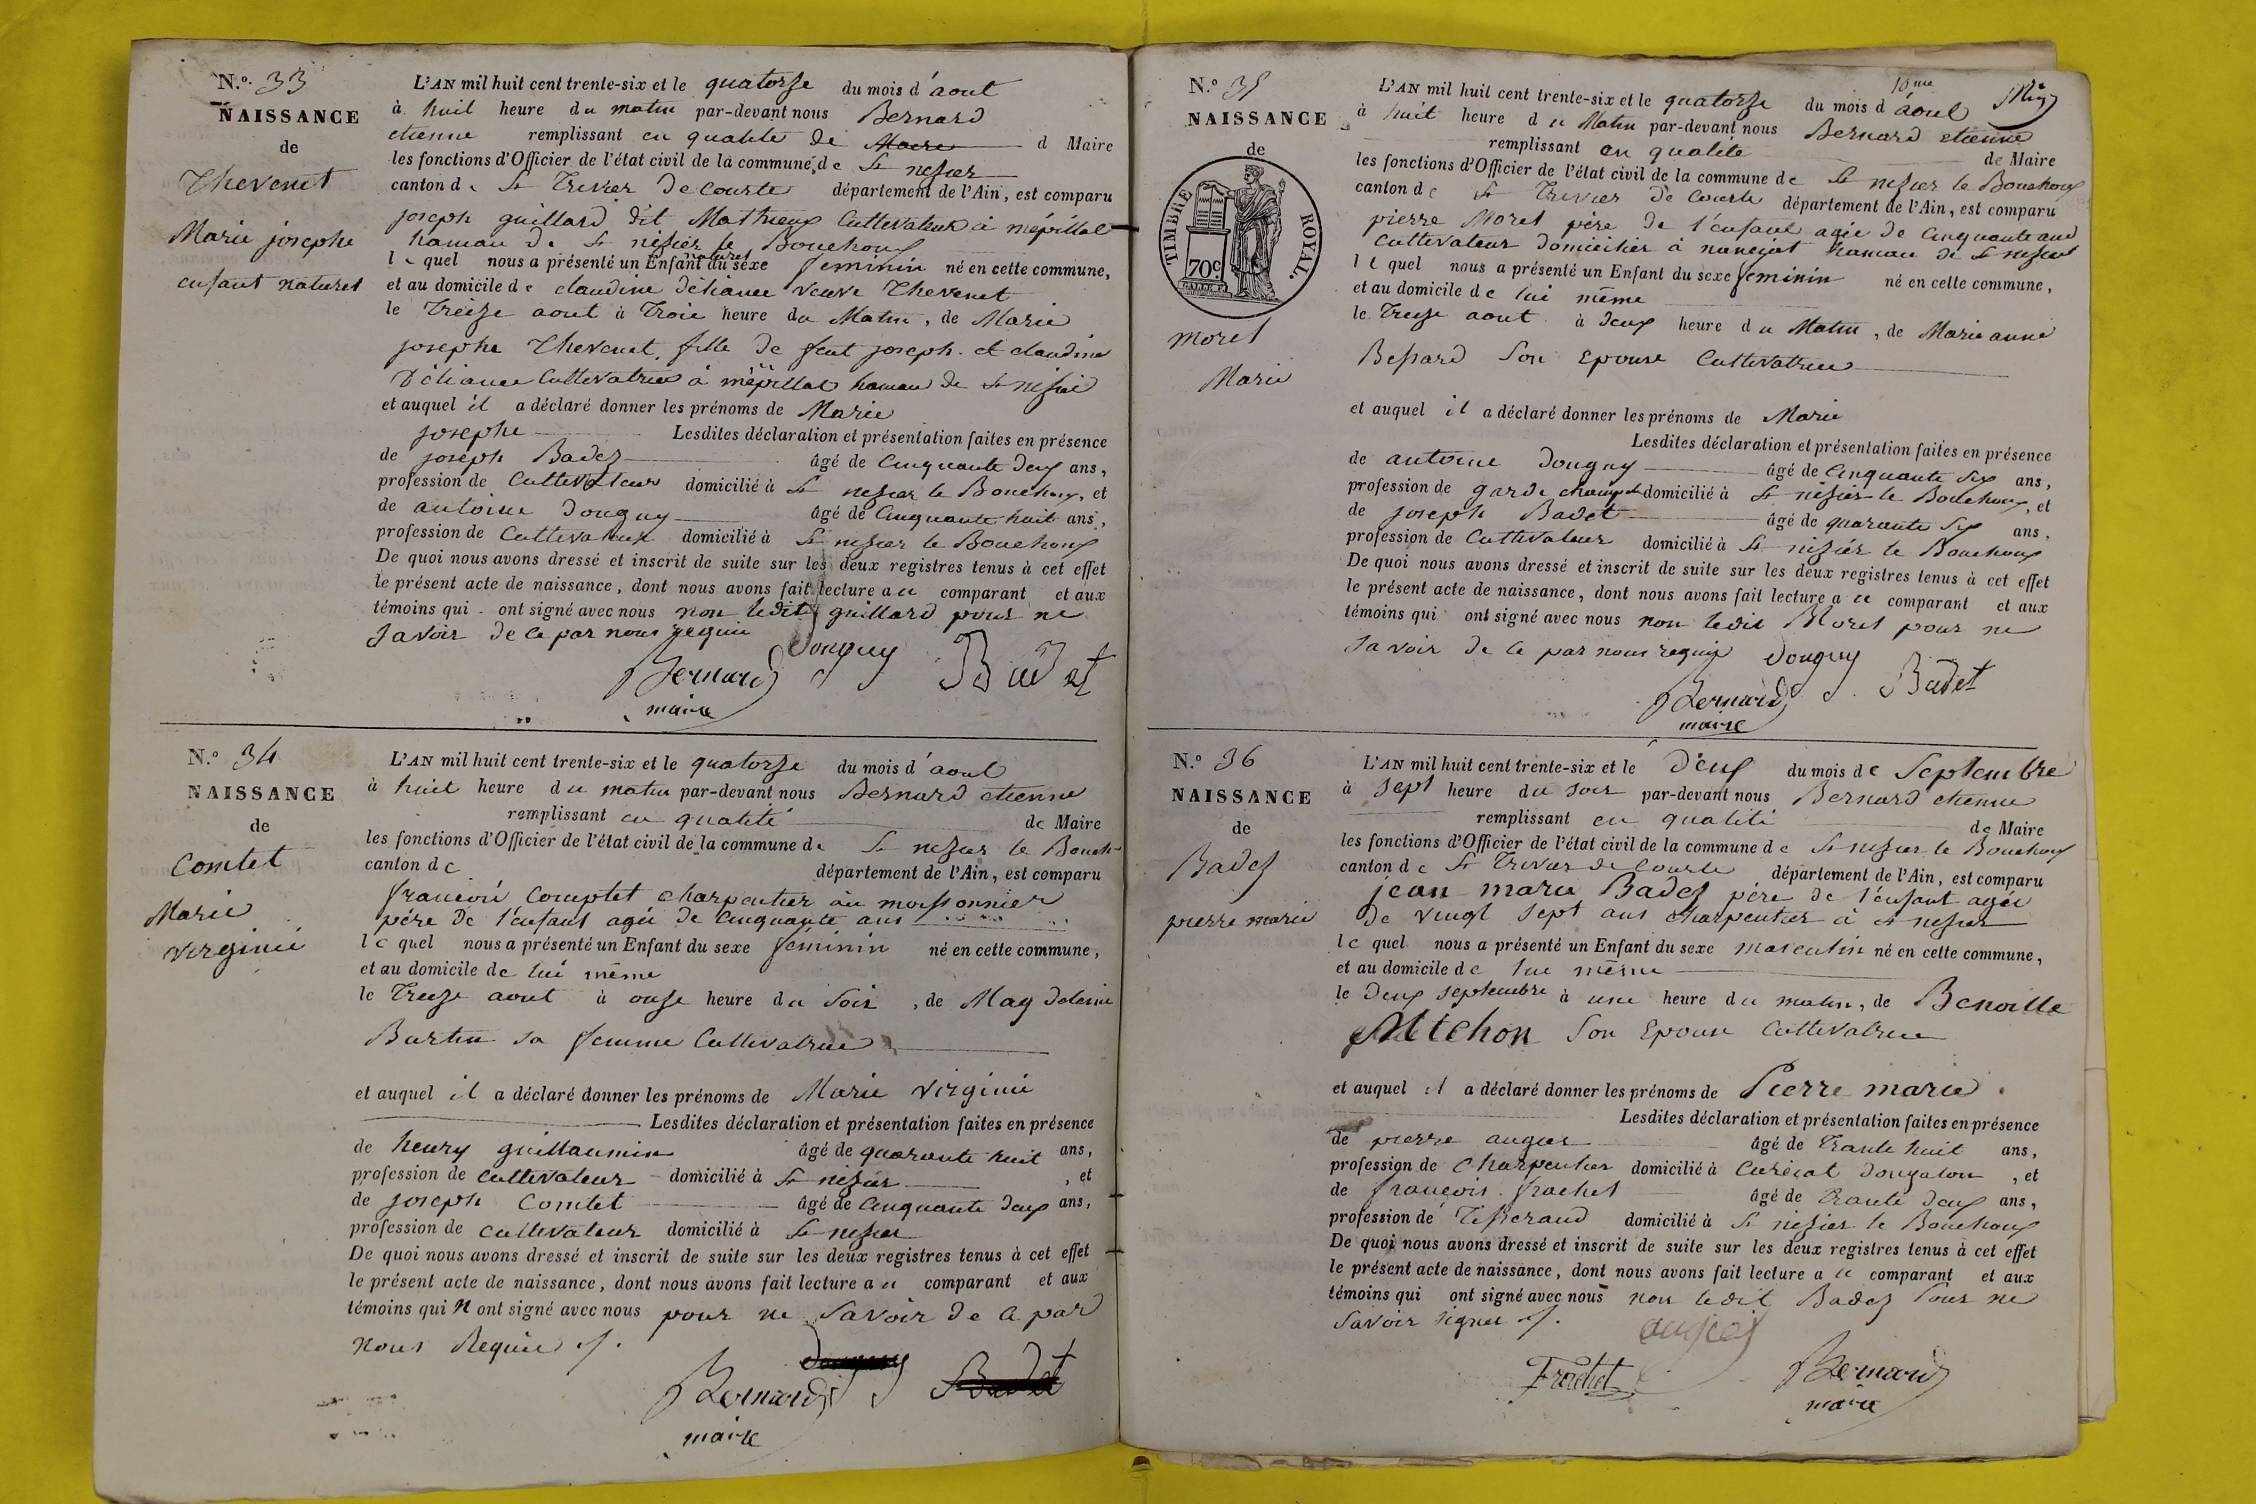 N.º 33
NAISSANCE
de
Thevenet
Marie josephe
enfant naturel
L'AN mil huit cent trente-six et le quatorse du mois d'aout
à huit heure du matin par-devant nous Bernard
etienne remplissant en qualité de Maire d Maire
les fonctions d'Officier de l'état civil de la commune de St nesier
canton de St Trivier De Courte département de l'Ain, est comparu
joseph guillard dit Mathieux Cultivateur à mépillat
hamau de St nisier le Bouchoux
naturel
le quel nous a présenté un Enfant du sexe feminin né en cette commune,
et au domicile de claudine déliance veuve Thevenet
le Treize aout à Trois heure du Matin, de Marie
josephe Thevenet, fille de feut joseph et claudine
Déliance Cultivatrice à mépillat hamau de St nisier
et auquel il a déclaré donner les prénoms de Marie
josephe Lesdites déclaration et présentation faites en présence
de joseph Badez âgé de Cinquante deux ans,
profession de Cultivateur domicilié à St nesier le Bouchoux, et
de antoine Donguy âgé de Cinquante huit ans,
profession de Cultivateur domicilié à St nesier le Bouchoux
De quoi nous avons dressé et inscrit de suite sur les deux registres tenus à cet effet
le présent acte de naissance, dont nous avons fait lecture au comparant et aux
témoins qui ont signé avec nous non ledit guillard pour ne
savoir de ce par nous requis
Bernard Donguy Badet
maire
N.º 34
NAISSANCE
de
Comtet
Marie
virginie
L'AN mil huit cent trente-six et le quatorse du mois d'aout
à huit heure du matin par-devant nous Bernard etienne
remplissant en qualité de Maire
les fonctions d'Officier de l'état civil de la commune de St nesier le Bouch-
canton de département de l'Ain, est comparu
francoi Comptet charpentier au moissonnier
père De l'enfant agée de cinquante ans
le quel nous a présenté un Enfant du sexe féminin né en cette commune,
et au domicile de lui même
le Treize aout à onse heure du Soir, de Magdeleine
Burtin sa femme Cultivatrice
et auquel il a déclaré donner les prénoms de Marie virginie
Lesdites déclaration et présentation faites en présence
de henry guillaumin âgé de quarante huit ans,
profession de cultivateur domicilié à St nisier, et
de joseph Comtet âgé de Cinquante deux ans,
profession de cultivateur domicilié à St nesier
De quoi nous avons dressé et inscrit de suite sur les deux registres tenus à cet effet
le présent acte de naissance, dont nous avons fait lecture au comparant et aux
témoins qui n ont signé avec nous pour ne Savoir de ce par
nous Requis ./.
Donguy
Bernard Badet
maire
N.º 35
NAISSANCE
de
TIMBRE ROYAL.
70c
morel
Marie
10me
L'AN mil huit cent trente-six et le quatorse du mois d'aout
à huit heure du Matin par-devant nous Bernard etienne
remplissant en qualité de Maire
les fonctions d'Officier de l'état civil de la commune de St nesier le Bouchoux
canton de St Trivier de Courte département de l'Ain, est comparu
pierre Morel père de l'enfant agée de Cinquante ans
Cultivateur domicilier à hamau de St nesier
le quel nous a présenté un Enfant du sexe feminin né en cette commune,
et au domicile de lui même
le Treize aout à deux heure du Matin, de Marie anne
Bessard Son Epouse Cultivatrice
et auquel il a déclaré donner les prénoms de Marie
Lesdites déclaration et présentation faites en présence
de antoine Donguy âgé de Cinquante Six ans,
profession de garde champet domicilié à St nisier le Bouchoux, et
de joseph Badet âgé de quarante Six ans,
profession de Cultivateur domicilié à St nisier le Bouchoux
De quoi nous avons dressé et inscrit de suite sur les deux registres tenus à cet effet
le présent acte de naissance, dont nous avons fait lecture au comparant et aux
témoins qui ont signé avec nous non ledit Morel pour ne
Savoir de ce par nous requis Donguy Badet
Bernard
maire
N.º 36
NAISSANCE
de
Badez
pierre marie
L'AN mil huit cent trente-six et le Deux du mois de Septembre
à Sept heure du soir par-devant nous Bernard etienne
remplissant en qualité de Maire
les fonctions d'Officier de l'état civil de la commune de St nesier le Bouchoux
canton de St Trivier de Courte département de l'Ain, est comparu
jean marie Badez père de l'enfant agée
De vingt Sept ans charpentier à St nesier
le quel nous a présenté un Enfant du sexe masculin né en cette commune,
et au domicile de lui même
le Deux septembre à une heure du matin, de Benoitte
Son Epouse Cultivatrice
et auquel il a déclaré donner les prénoms de Pierre marie
Lesdites déclaration et présentation faites en présence
de pierre augier âgé de Trante huit ans,
profession de Charpentier domicilié à Curciat Dongalon, et
de françois frachet âgé de Trante deux ans,
profession de Tisserand domicilié à St nizier le Bouchoux
De quoi nous avons dressé et inscrit de suite sur les deux registres tenus à cet effet
le présent acte de naissance, dont nous avons fait lecture au comparant et aux
témoins qui ont signé avec nous non ledit Badez Pour ne
Savoir signer ./.
Frachet Bernard
maire